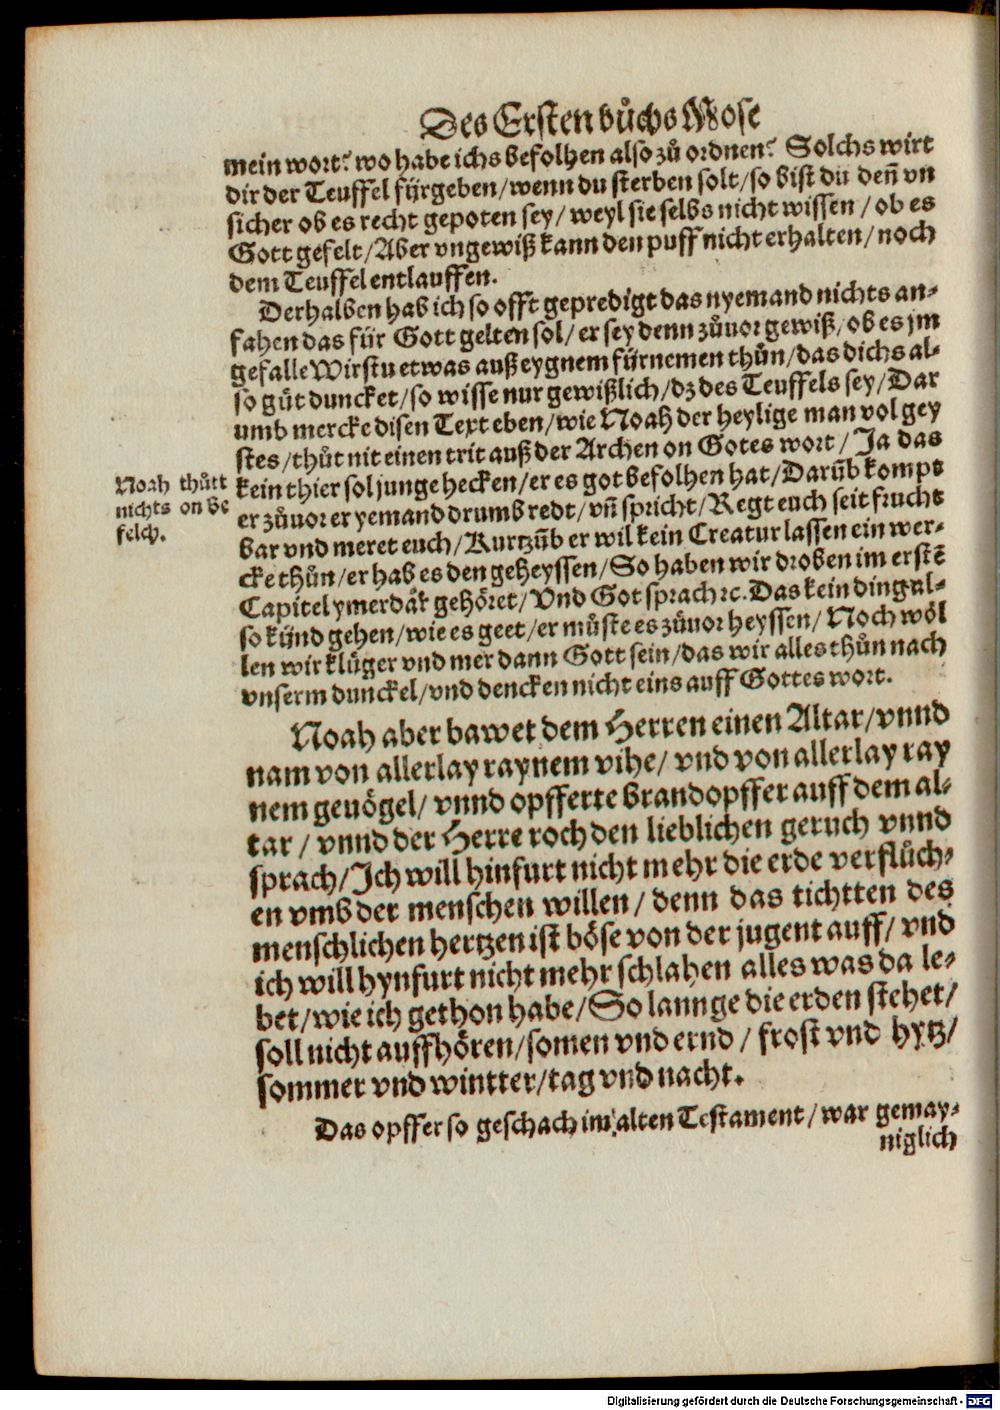 Des Ersten bůchs Mose
mein wort? wo habe ichs befolhen also zů ordnen? Solchs wirt
dir der Teuffel fürgeben/wenn du sterben solt/so bist du deñ vn
sicher ob es recht gepoten sey/ weyl sie selbs nicht wissen / ob es
Gott gefelt/Aber vngewiß kann den puff nicht erhalten/noch
dem Teuffel entlauffen.
Derhalben hab ich so offt gepredigt das nyemand nichts an-
fahen das für Gott gelten sol/ er sey denn zůuor gewiß/ob es jm
gefalle Wirstu etwas auß eygnem fürnemen thůn/das dichs al-
so gůt duncket/so wisse nur gewißlich/dz des Teuffels sey/Dar
umb mercke disen Text eben/wie Noah der heylige man vol gey
stes/thůt nit einen trit auß der Archen on Gotes wort/ Ja das
kein thier sol junge hecken/er es got befolhen hat/Darůb kompt
Noah thůtt
nichts on be
felch.
er zůuor er yemand drumb redt/vñ spricht/Regt euch seit frucht
bar vnd meret euch/Kurtzũb er wil kein Creatur lassen ein wer-
cke thůn/er hab es den geheyssen/So haben wir droben im erstẽ
Capitel ymerdar gehöret/Vnd Got sprach ꝛc. Das kein ding al-
so künd gehen/wie es geet/er můste es zůuor heyssen/ Noch wöl
len wir klüger vnd mer dann Gott sein/das wir alles thůn nach
vnserm dunckel/vnd dencken nicht eins auff Gottes wort.
Noah aber bawet dem Herren einen Altar/vnnd
nam von allerlay raynem vihe/ vnd von allerlay ray
nem geuögel/ vnnd opfferte brandopffer auff dem al-
tar / vnnd der Herre roch den lieblichen geruch vnnd
sprach/Ich will hinfurt nicht mehr die erde verflůch-
en vmb der menschen willen/ denn das tichtten des
menschlichen hertzen ist böse von der jugent auff/ vnd
ich will hynfurt nicht mehr schlahen alles was da le-
bet/wie ich gethon habe/So lannge die erden stehet/
soll nicht auffhören/somen vnd ernd / frost vnd hytz/
sommer vnd wintter/tag vnd nacht.
Das opffer so geschach im alten Testament/war gemay-
niglich
Digitalisierung gefördert durch die Deutsche Forschungsgemeinschaft - DFG